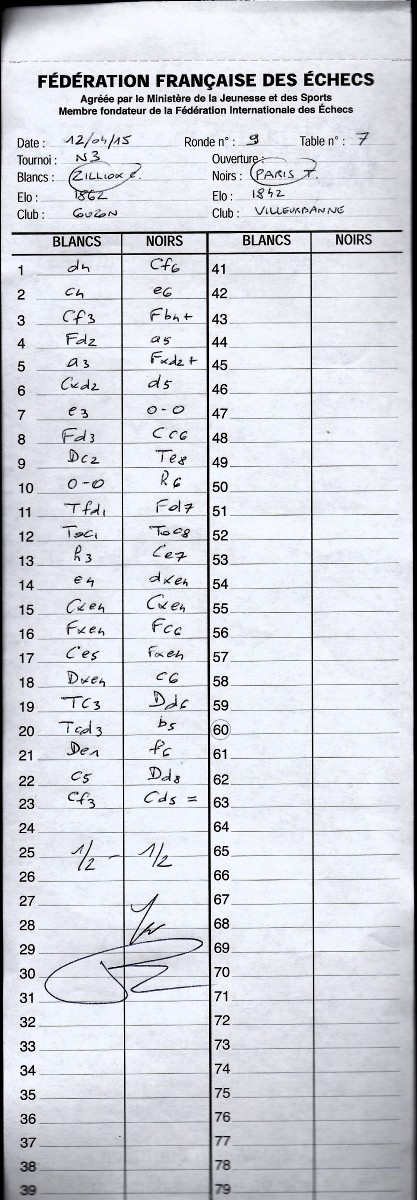 FÉDÉRATION FRANÇAISE DES ÉCHECS
Agréée par le Ministère de la Jeunesse et des Sports
Membre fondateur de la Fédération Internationale des Échecs
Date : 12/04/15 Ronde n° : 9 Table n° : 7
Tournoi : N3 Ouverture :
Blancs : ZILLIOX C. Noirs : PARIS T.
Elo : 1862 Elo : 1842
Club : GUZON Club : VILLEURBANNE
BLANCS NOIRS BLANCS NOIRS
1 d4 Cf6 41
2 c4 e6 42
3 Cf3 Fb4+ 43
4 Fd2 a5 44
5 a3 Fxd2+ 45
6 Cxd2 d5 46
7 e3 0-0 47
8 Fd3 Cc6 48
9 Dc2 Te8 49
10 0-0 h6 50
11 Tfd1 Fd7 51
12 Tac1 Tac8 52
13 h3 Ce7 53
14 e4 dxe4 54
15 Cxe4 Cxe4 55
16 Fxe4 Fc6 56
17 Ce5 Fxe4 57
18 Dxe4 c6 58
19 Tc3 Dd6 59
20 Tcd3 b5 60
21 De1 f6 61
22 c5 Dd8 62
23 Cf3 Cd5 = 63
24 64
25 1/2 - 1/2 65
26 66
27 67
28 68
29 69
30 70
31 71
32 72
33 73
34 74
35 75
36 76
37 77
38 78
39 79